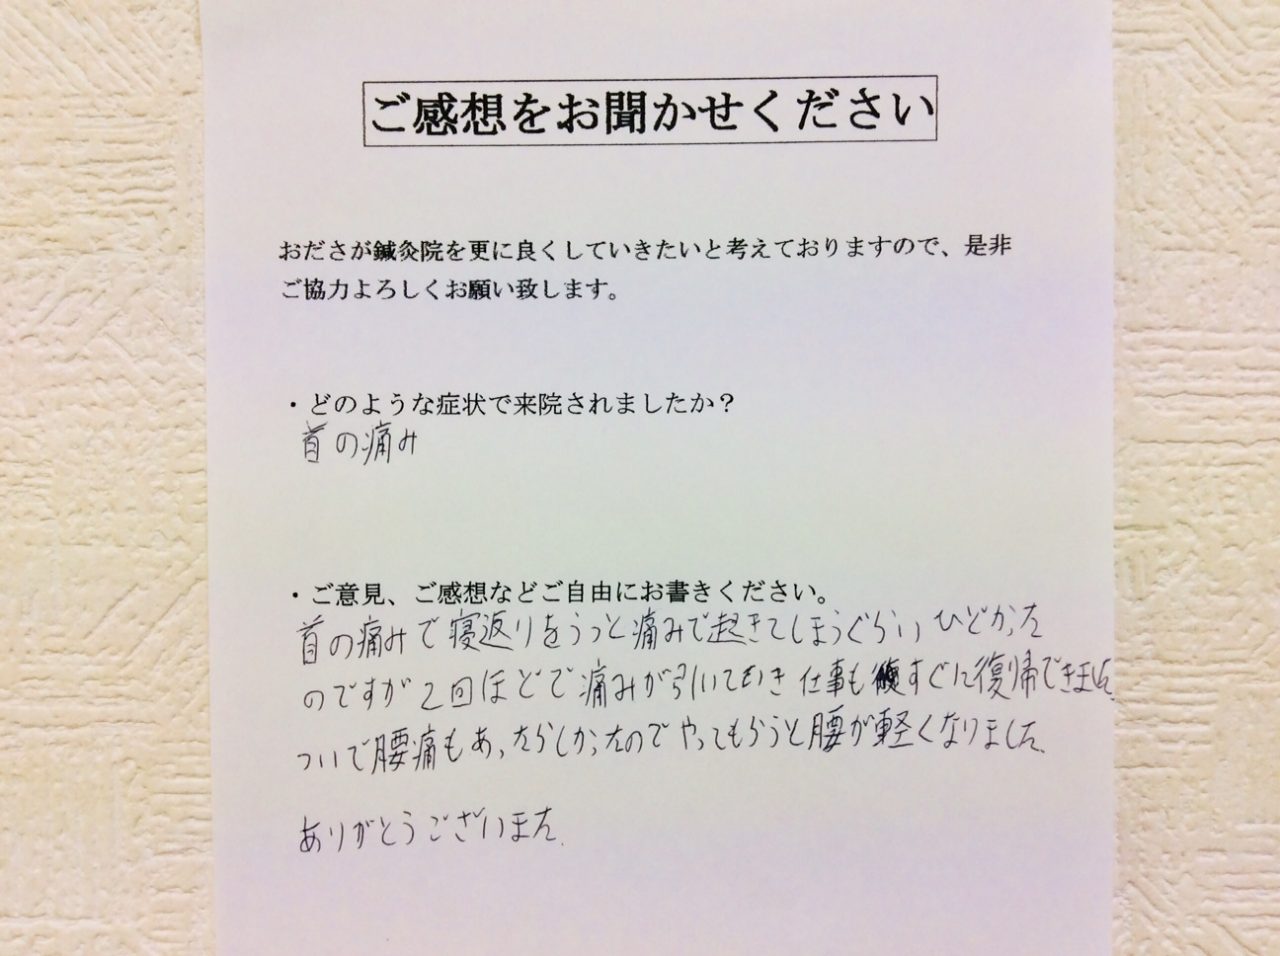 ご感想をお聞かせください
おださが鍼灸院を更に良くしていきたいと考えておりますので、是非
ご協力よろしくお願い致します。
・どのような症状で来院されましたか？
首の痛み
・ご意見、ご感想などご自由にお書きください。
首の痛みで寝返りをうつと痛みで起きてしまうぐらいひどかった
のですが2回ほどで痛みが引いていき仕事もすぐに復帰できました
ついで腰痛もあったらしかったのでやってもらうと腰が軽くなりました。
ありがとうございました。